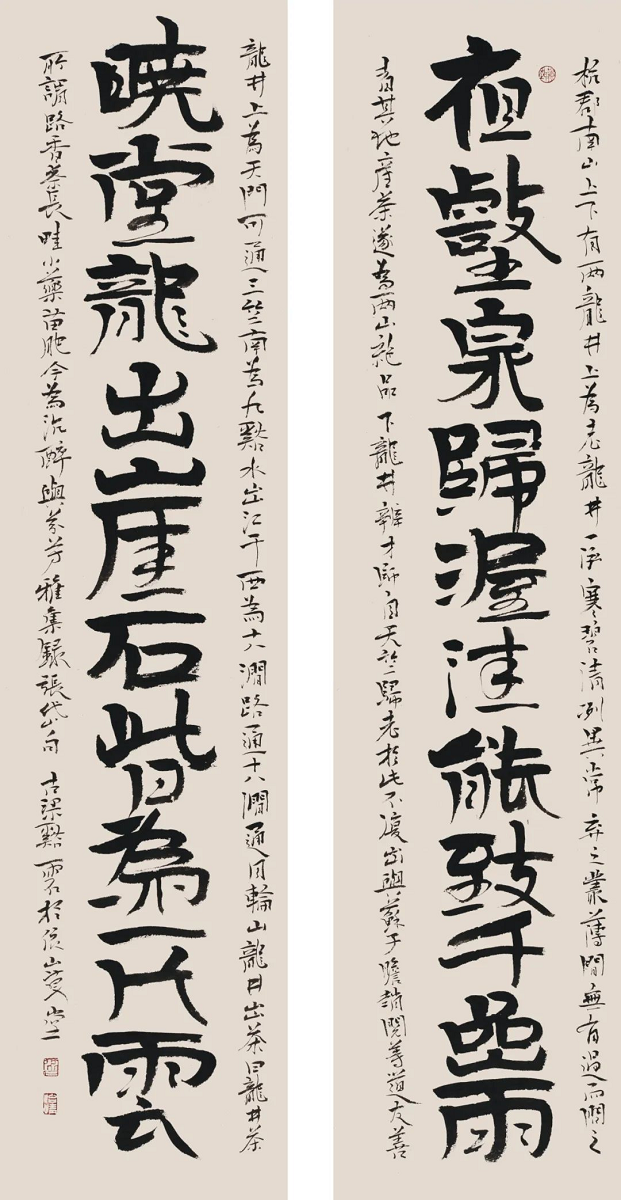 杭郡南山上下有兩龍井上為老龍井一泓寒碧清洌異常棄之叢薄間無有過而問之
夜壑泉歸渥洼能致千嵒雨
者其地產茶遂為兩山絕品下龍井辯才師自天竺歸老於此不復出與蘇子瞻趙閱等道友善
龍井上為天門可通三竺南為九谿水出江干西為十八澗路通十八澗通月輪山龍井出茶曰龍井茶
曉堂龍出崖石皆為一片雲
所謂路香茶長畦小藥苗肥今為沉醉與芬芳雅集錄張岱句 古梁谿